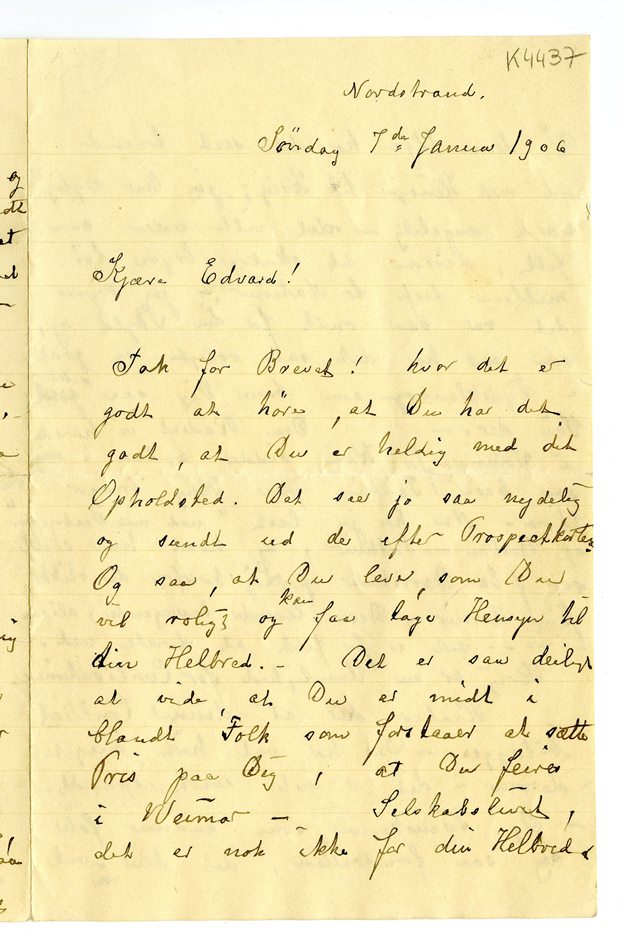 K4437
Nordstrand.
Søndag 7de Januar 1906
Kjære Edvard!
Tak for Brevet! hvor det er
godt at høre, at Du har det
godt, at Du er heldig med dit
Opholdsted. Det seer jo saa nydelig
og sundt ud der efter Prospectkortene
Og saa, at Du lever, som Du
vil rolig, og kan faa tage Hensyn til
din Helbred. – Det er saa deiligt
at vide, at Du er midt i
blandt Folk som forstaaer at sætte
Pris paa Dig, at Du feires
i Weimar – Selskabslivet,
det er nok ikke for din Helbred